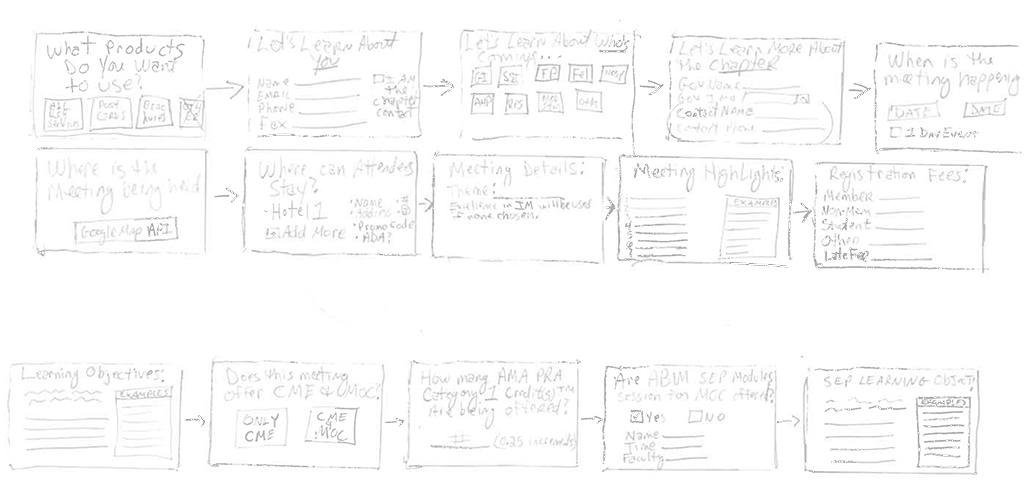 What Products
Do You Want
to use?
Post
Cards
Let's Learn About
You
Name
Email
Phone
Fax
I AM
the
chapter
contact
Let's Learn About Who's
Coming...
Let's Learn More About
the Chapter
Gov Name
Gov Email
Contact Name
Contact Phone
When is the
meeting happening
DATE DATE
1 Day Event
Where is the
Meeting being held
Google Map API
Where can Attenders
Stay?
• Hotel 1
Add More
• Name
• Address
• Promo Code
• ADA?
Meeting Details:
Theme:
Excellence in IM will be used
if none chosen.
Meeting Highlights:
EXAMPLES
Registration Fees:
Member
Non-Mem
Student
Other
Late Fee
Learning Objectives:
EXAMPLES
Does this meeting
offer CME & MOC?
ONLY
CME
CME
& MOC
How many AMA PRA
Category 1 Credit(s)™
Are being offered?
#
(0.25 increments)
Are ABIM SEP Modules
session for MOC offered?
Yes No
Name
Time
Faculty
SEP LEARNING Object
EXAMPLES